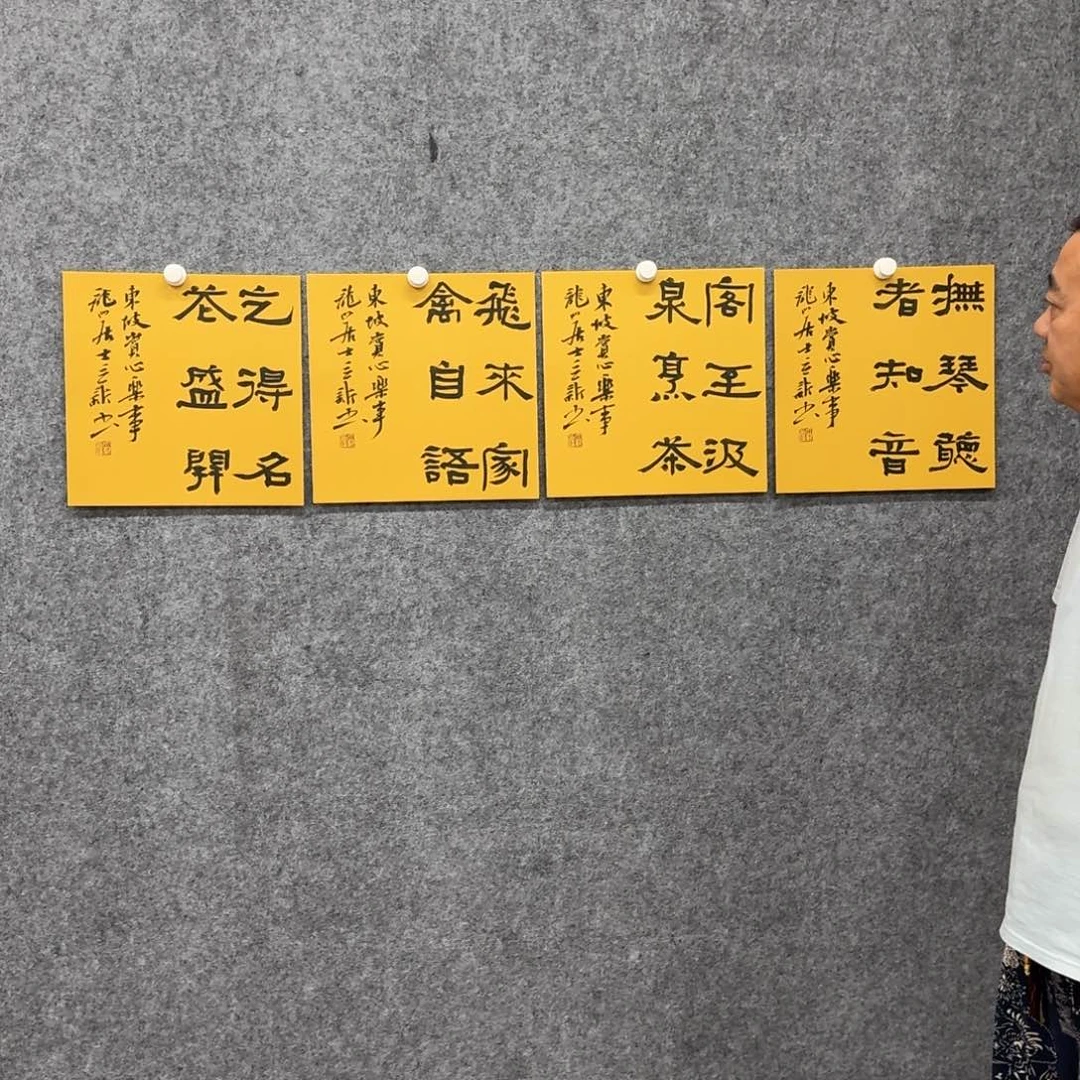 撫琴聽
者知音
東坡賞心樂事
龍山居士三
客至汲
泉烹茶
東坡賞心樂事
龍山居士三
飛來家
禽自語
東坡賞心樂事
龍山居士三
乞得名
花盛開
東坡賞心樂事
龍山居士三